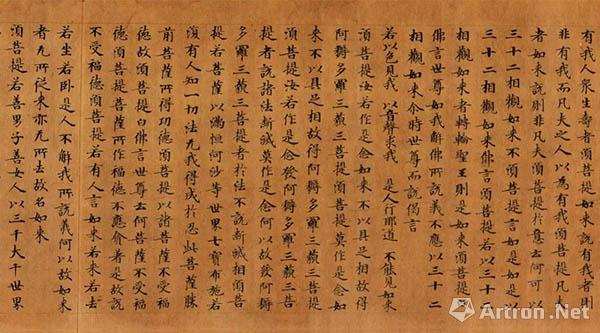 有我人衆生壽者須菩提如來說有我者則
非有我而凡夫之人以為有我須菩提凡夫
者如來說則非凡夫須菩提於意云何可以
三十二相觀如來不須菩提言如是如是以
三十二相觀如來佛言須菩提若以三十二
相觀如來者轉輪聖王則是如來須菩提白
佛言世尊如我解佛所說義不應以三十二
相觀如來尒時世尊而說偈言
若以色見我 以音聲求我 是人行邪道 不能見如來
須菩提汝若作是念如來不以具足相故得
阿耨多羅三藐三菩提須菩提莫作是念如
來不以具足相故得阿耨多羅三藐三菩提
須菩提汝若作是念發阿耨多羅三藐三菩
提者說諸法斷滅莫作是念何以故發阿耨
多羅三藐三菩提者於法不說斷滅相須菩
提若菩薩以滿恒河沙等世界七寶布施若
復有人知一切法无我得成於忍此菩薩勝
前菩薩所得功德須菩提以諸菩薩不受福
德故須菩提白佛言世尊云何菩薩不受福
德須菩提菩薩所作福德不應貪著是故說
不受福德須菩提若有人言如來若來若去
若坐若卧是人不解我所說義何以故如來
者无所從來亦无所去故名如來
須菩提若善男子善女人以三千大千世界
Artron.Net